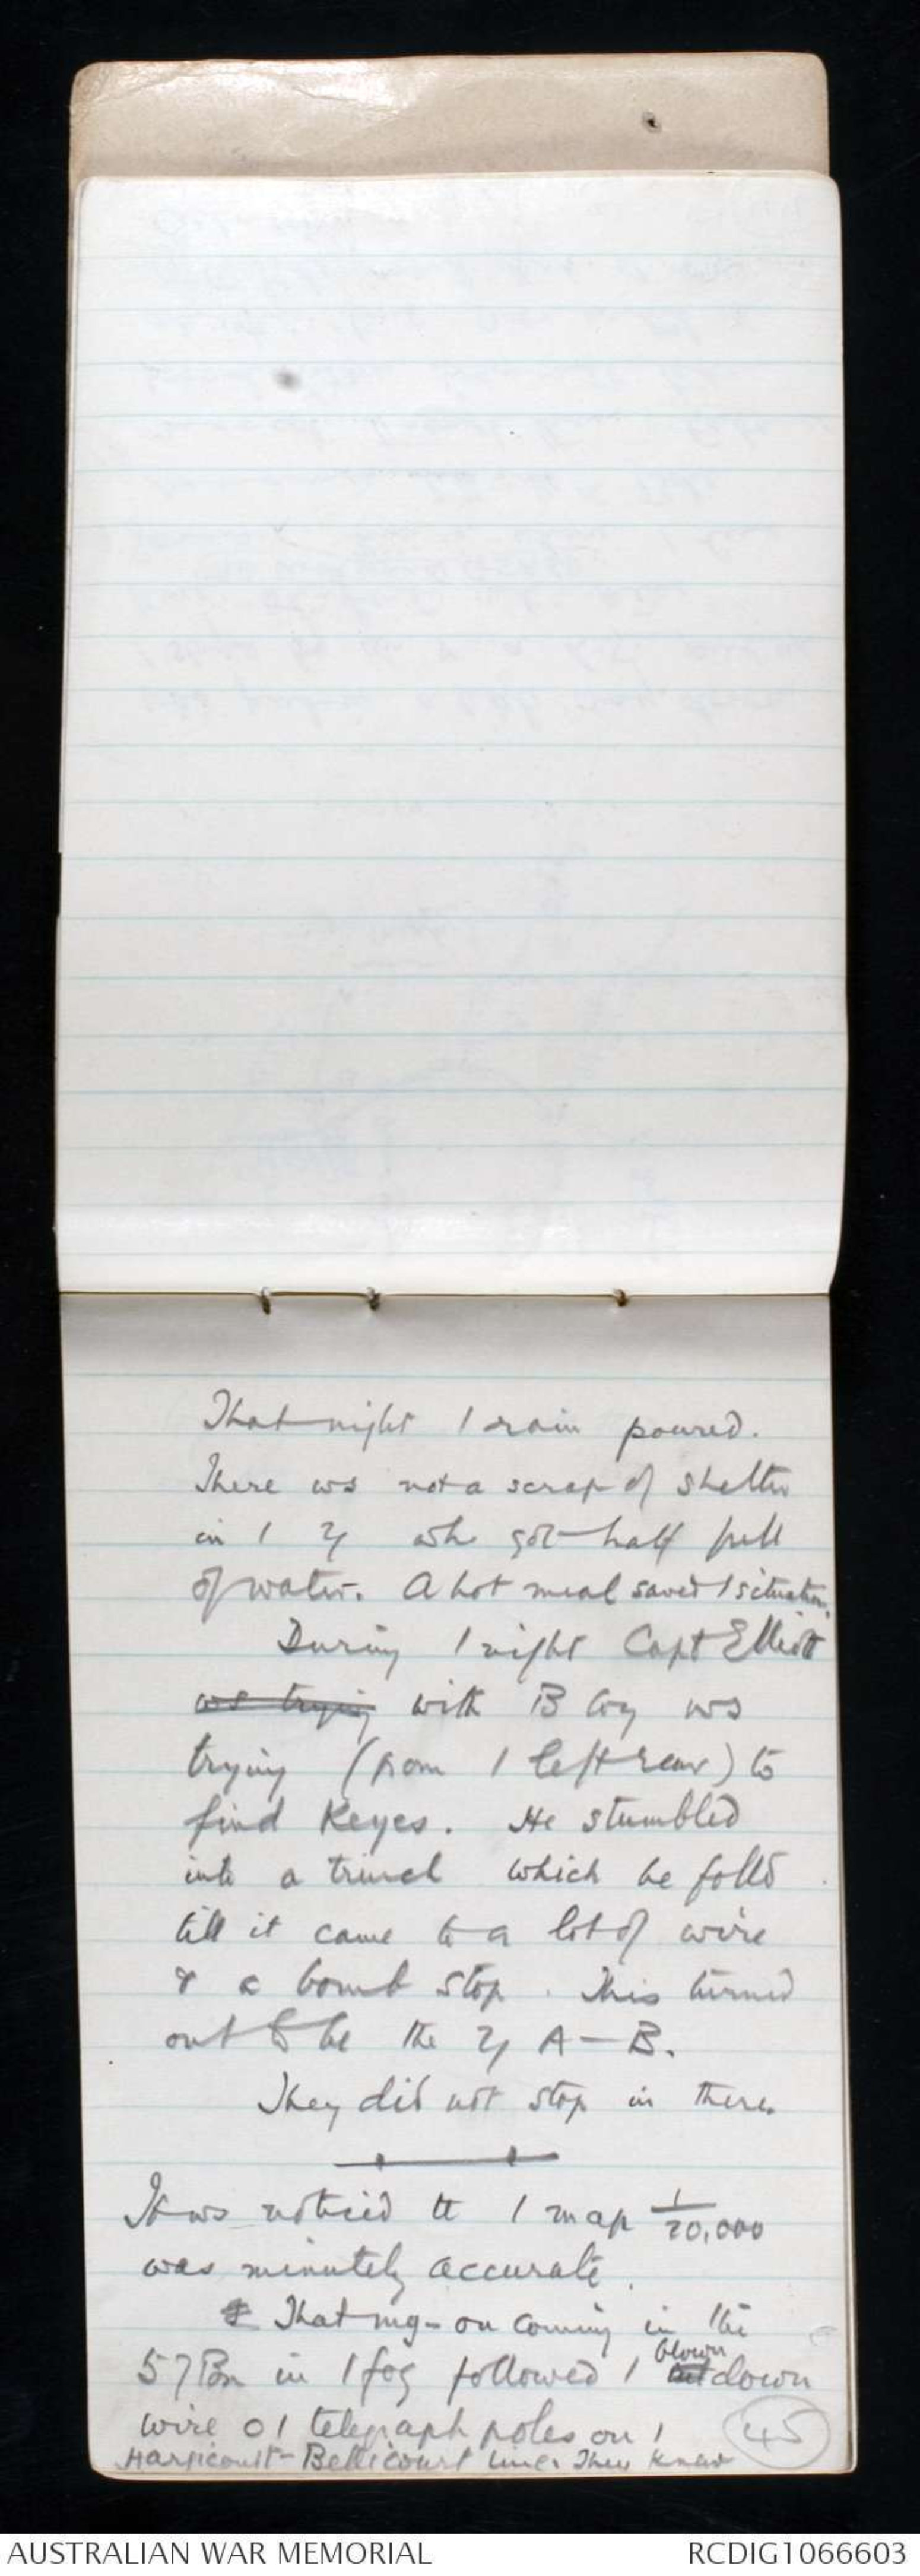 That night / rain poured.
There ws not a scrap of shelter
in / wh got half full
of water. A hot meal saved / situation.
During / night Capt Elliott
ws trying with B Coy ws
trying (from / left rear) to
find Keyes. He stumbled
into a trench which he folld
till it came to a lot of wire
& a bomb stop. This turned
out to be the A - B.
They did not stop in there.
It ws noticed tt / map 1/20,000
was minutely accurate.
That mg - on coming in the
57 Bn in / fog followed / blown down
wire o / telegraph poles on /
Hargicourt - Bellicourt line. They knew
45
AUSTRALIAN WAR MEMORIAL
RCDIG1066603